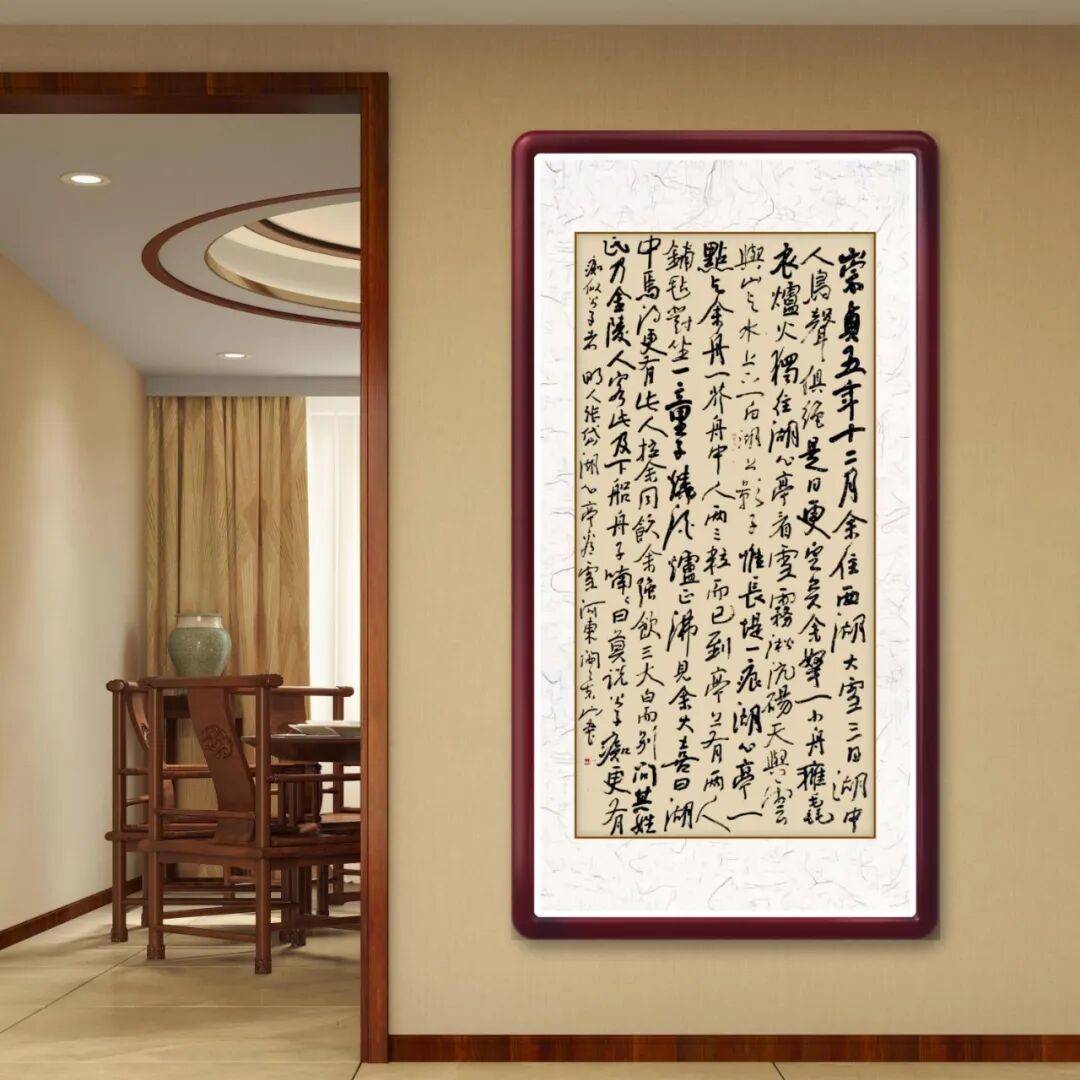 崇貞五年十二月余住西湖大雪三日湖中
人鳥聲俱絕是日更定矣余拏一小舟擁毳
衣爐火獨往湖心亭看雪霧淞沆碭天與雲
與山与水上下一白湖上影子惟長堤一痕湖心亭一
點与余舟一芥舟中人兩三粒而已到亭上有兩人
鋪毡對坐一童子燒酒爐正沸見余大喜曰湖
中焉得更有此人拉余同飲余強飲三大白而別問其姓
氏乃金陵人客此及下船舟子喃喃曰莫說公子痴更有
痴似公子者 明人張岱湖心亭看雪 河東